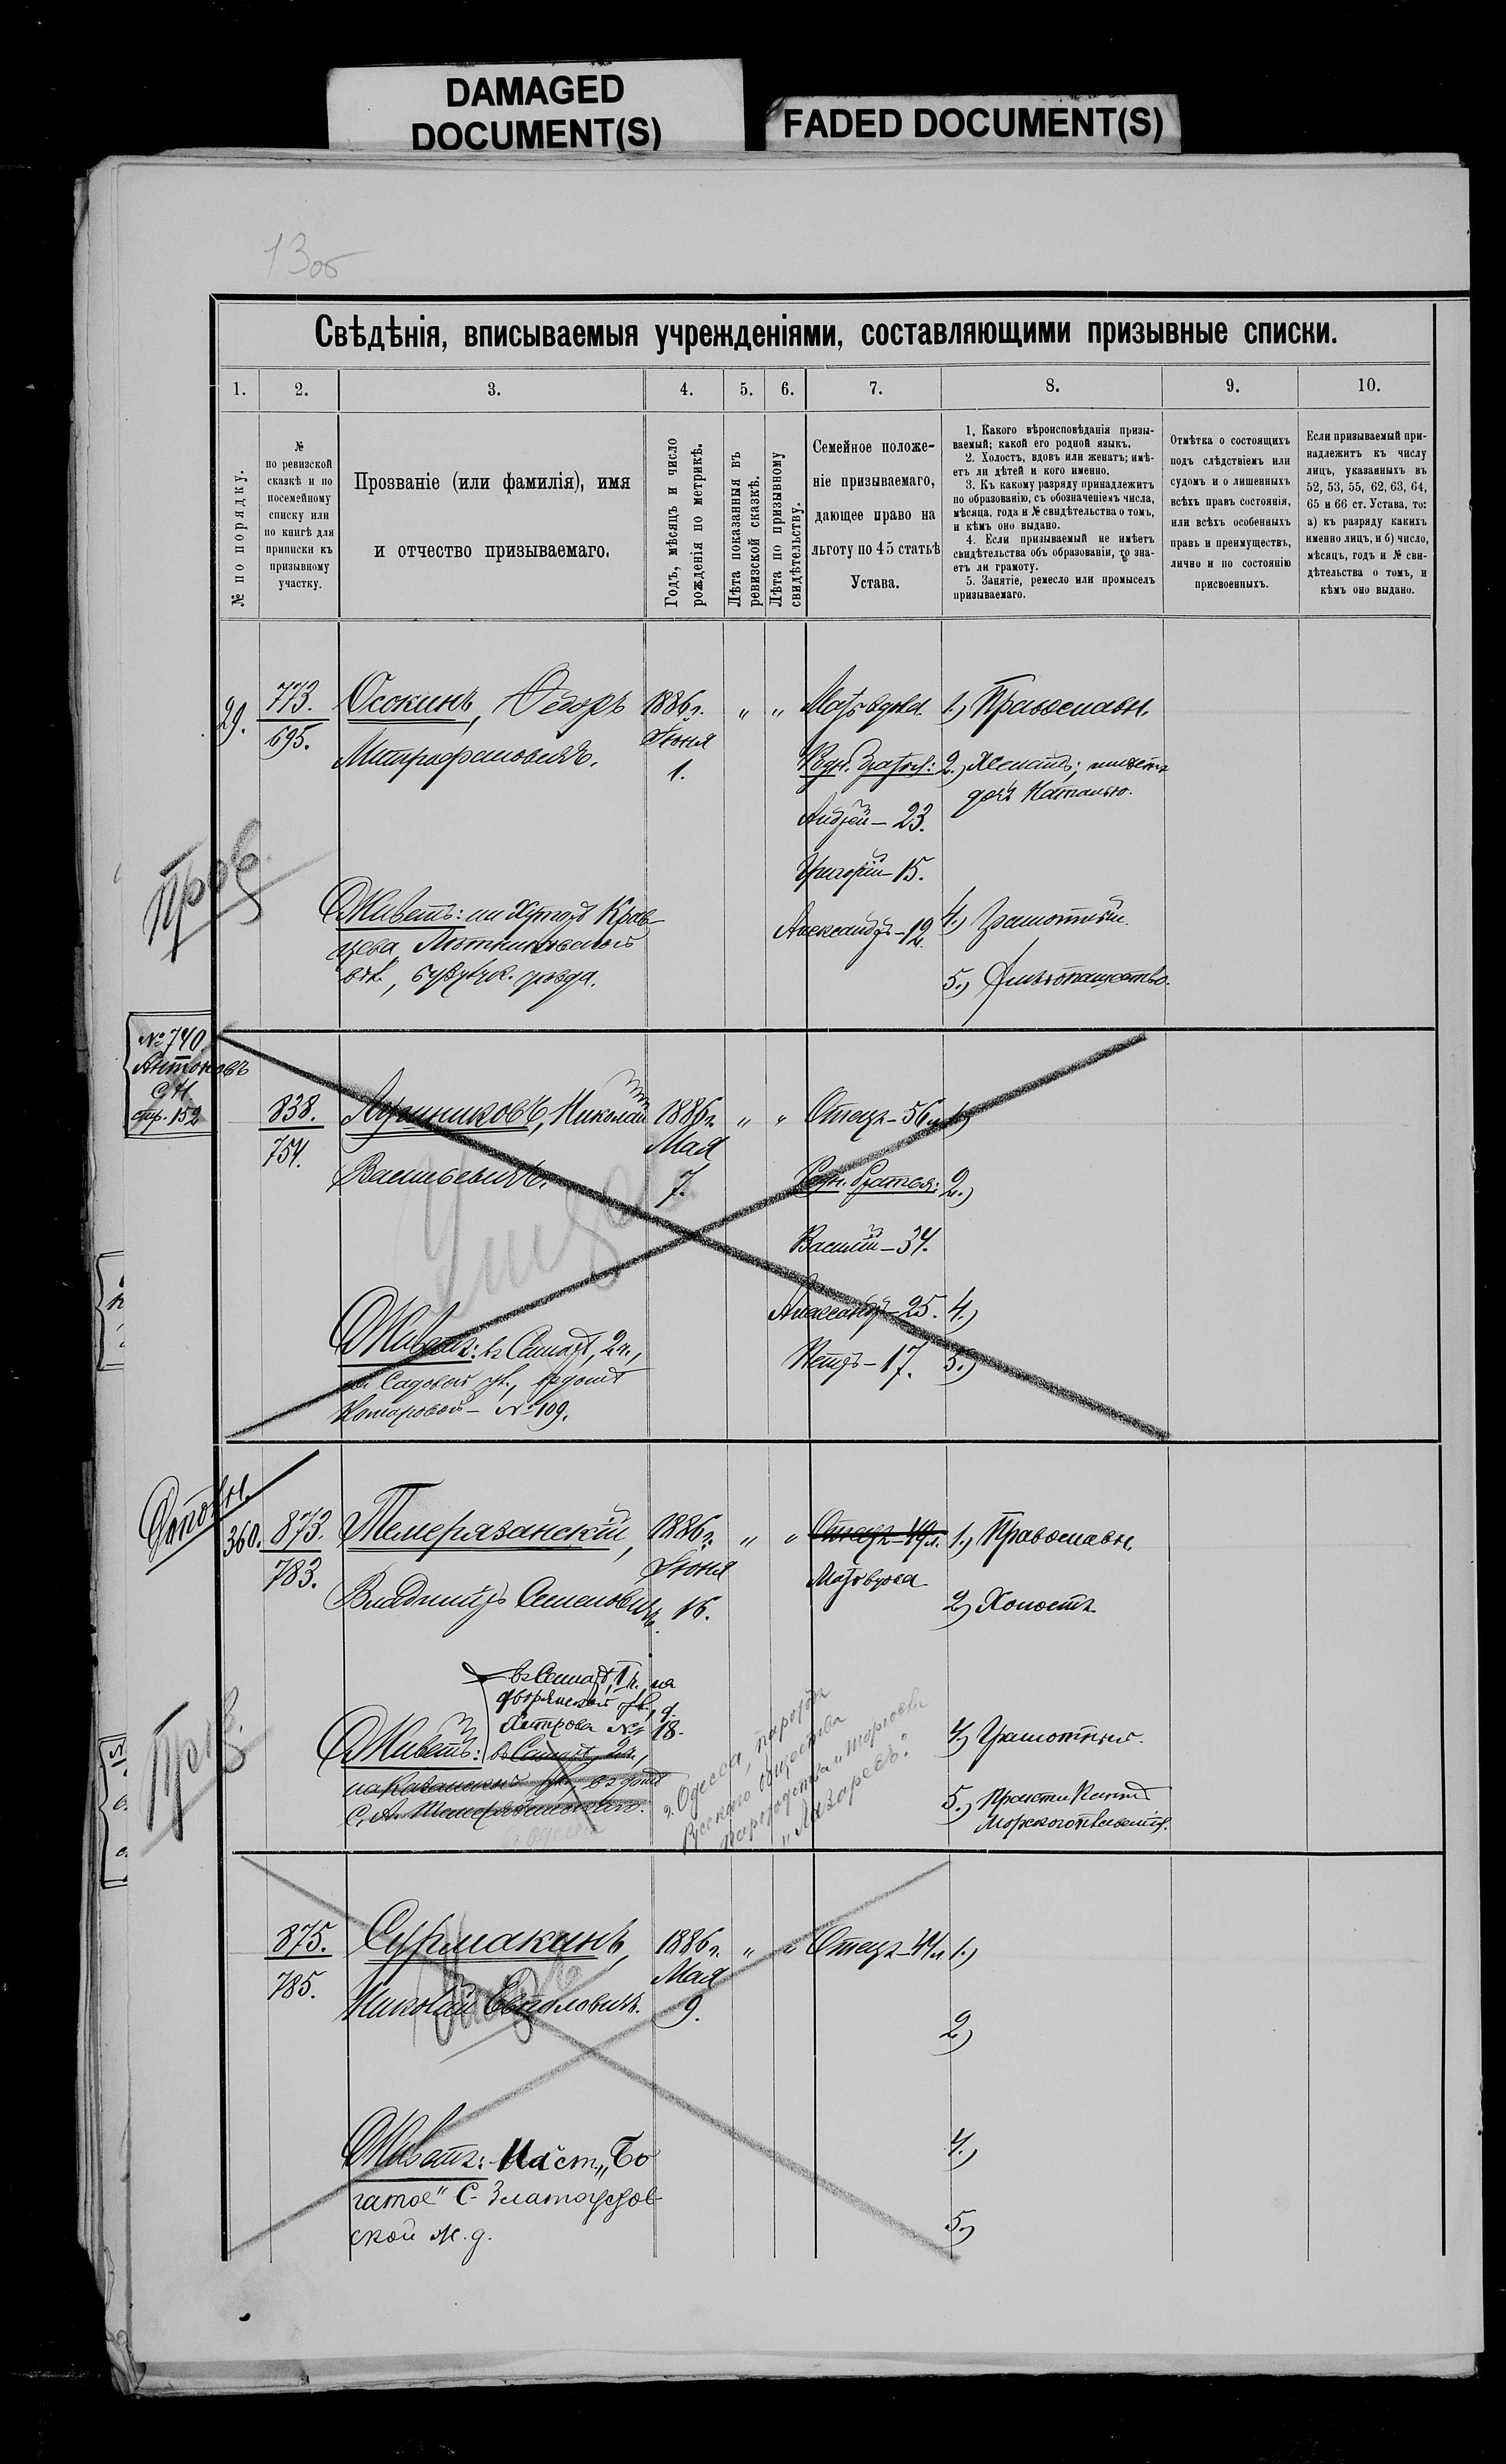 DAMAGED
DOCUMENT(S)
FADED DOCUMENT(S)
13об
Свѣдѣнія, вписываемыя учрежденіями, составляющими призывные списки.
1.
2.
3.
4.
5.
6.
7.
8.
9.
10.
№ по порядку.
№
по ревизской
сказкѣ и по
посемейному
списку или
по книгѣ для
приписки къ
призывному
участку.
Прозваніе (или фамилія), имя
и отчество призываемаго.
Годъ, мѣсяцъ и число
рожденія по метрикѣ.
Лѣта показанныя въ
ревизской сказкѣ.
Лѣта по призывному
свидѣтельству.
Семейное положе-
ніе призываемаго,
дающее право на
льготу по 45 статьѣ
Устава.
1. Какого вѣроисповѣданія призы-
ваемый; какой его родной языкъ.
2. Холостъ, вдовъ или женатъ; имѣ-
етъ ли дѣтей и кого именно.
3. Къ какому разряду принадлежитъ
по образованію, съ обозначеніемъ числа,
мѣсяца, года и № свидѣтельства о томъ,
и кѣмъ оно выдано.
4. Если призываемый не имѣетъ
свидѣтельства объ образованіи, то зна-
етъ ли грамоту.
5. Занятіе, ремесло или промыселъ
призываемаго.
Отмѣтка о состоящихъ
подъ слѣдствіемъ или
судомъ и о лишенныхъ
всѣхъ правъ состоянія,
или всѣхъ особенныхъ
правъ и преимуществъ,
лично и по состоянію
присвоенныхъ.
Если призываемый при-
надлежитъ къ числу
лицъ, указанныхъ въ
52, 53, 55, 62, 63, 64,
65 и 66 ст. Устава, то:
а) къ разряду какихъ
именно лицъ, и б) число,
мѣсяцъ, годъ и № сви-
дѣтельства о томъ, и
кѣмъ оно выдано.
29.
773.
695.
Осокинъ, Ѳедоръ
Митрофановичъ.
1886 г.
Іюня
1.
" "
Мать вдова.
Родн. братья:
Андрей – 23.
Григорій – 15.
Александръ – 12
1.) Православн.
2.) Женатъ; имѣетъ
дочь Наталью.
4.) Грамотный.
5.) Хлѣбопашество.
Живетъ: на Хуторѣ
вол., Бузулук. уѣзда.
№ 740
Антоновъ
стр. 152
838.
754.
Николай
Васильевичъ.
1886 г.
Мая
7.
" "
Отецъ – 56 л.
Родн. братья:
Василій – 34.
Александръ – 25.
Петръ – 17.
1.)
2.)
4.)
5.)
Живетъ: въ Самарѣ, 2 ч.,
на Садовой ул., въ домѣ
Комаровой – № 109.
360.
873.
783.
Темерязанскій,
Владиміръ Семеновичъ
1886 г.
Іюня
16.
" "
Отецъ – 49 л.
Мать вдова
1.) Православн.
2.) Холостъ.
4.) Грамотный.
5.) Практикантъ
Морского
въ Самарѣ, 1 ч., на
Дворянской ул., д.
Петрова № 18.
Живетъ: въ Самарѣ, 2 ч.,
на Казанской ул., въ домѣ
въ Одессѣ
г. Одесса, пароходъ
Русскаго Общества
пароходства и торговли
"Лазаревъ".
875.
785.
Сурмакинъ,
Николай
1886 г.
Мая
9.
" "
Отецъ – 44 л
1.)
2.)
4.)
5.)
Живетъ: На ст. „Бо
гатое" С- Златоустов-
ской ж. д.